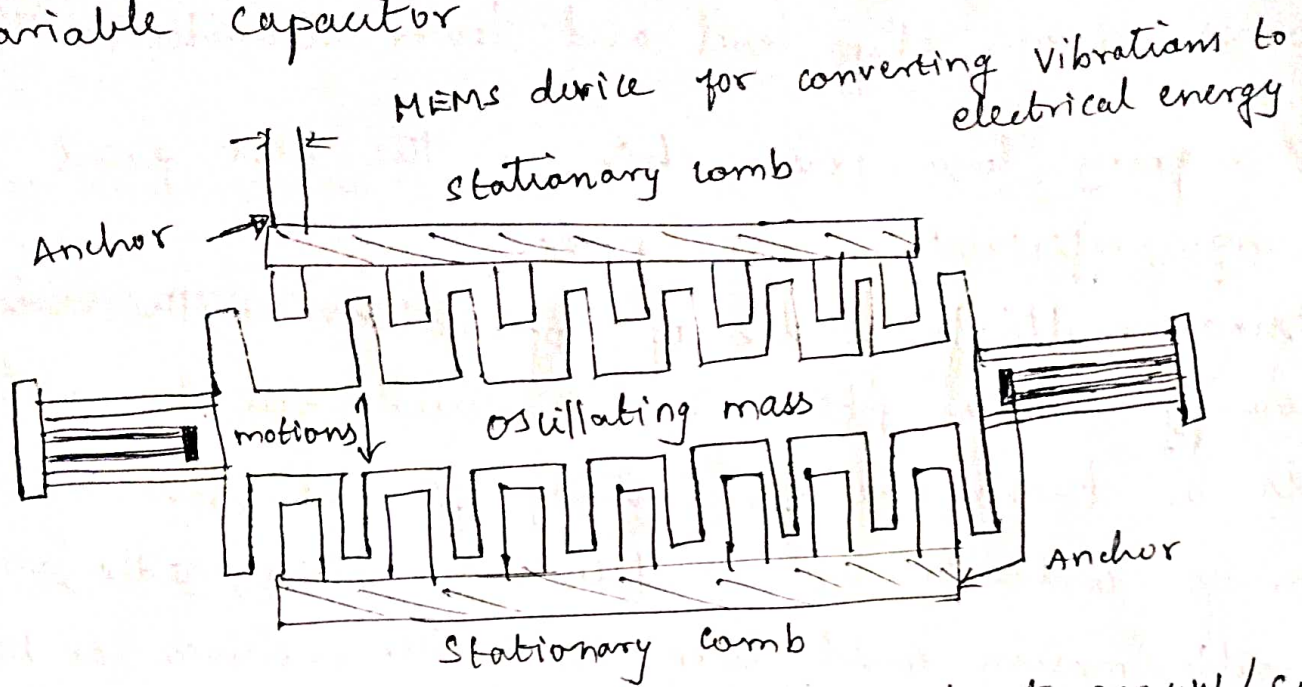 ariable capacitor
MEMS device for converting vibrations to
electrical energy
stationary comb
Anchor
motions
oscillating mass
Anchor
Stationary comb